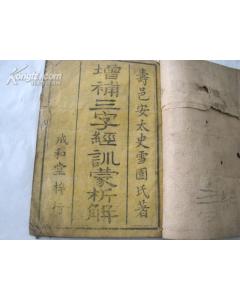 壽邑安太史雪園氏著
增補三字經訓蒙析解
成和堂梓行